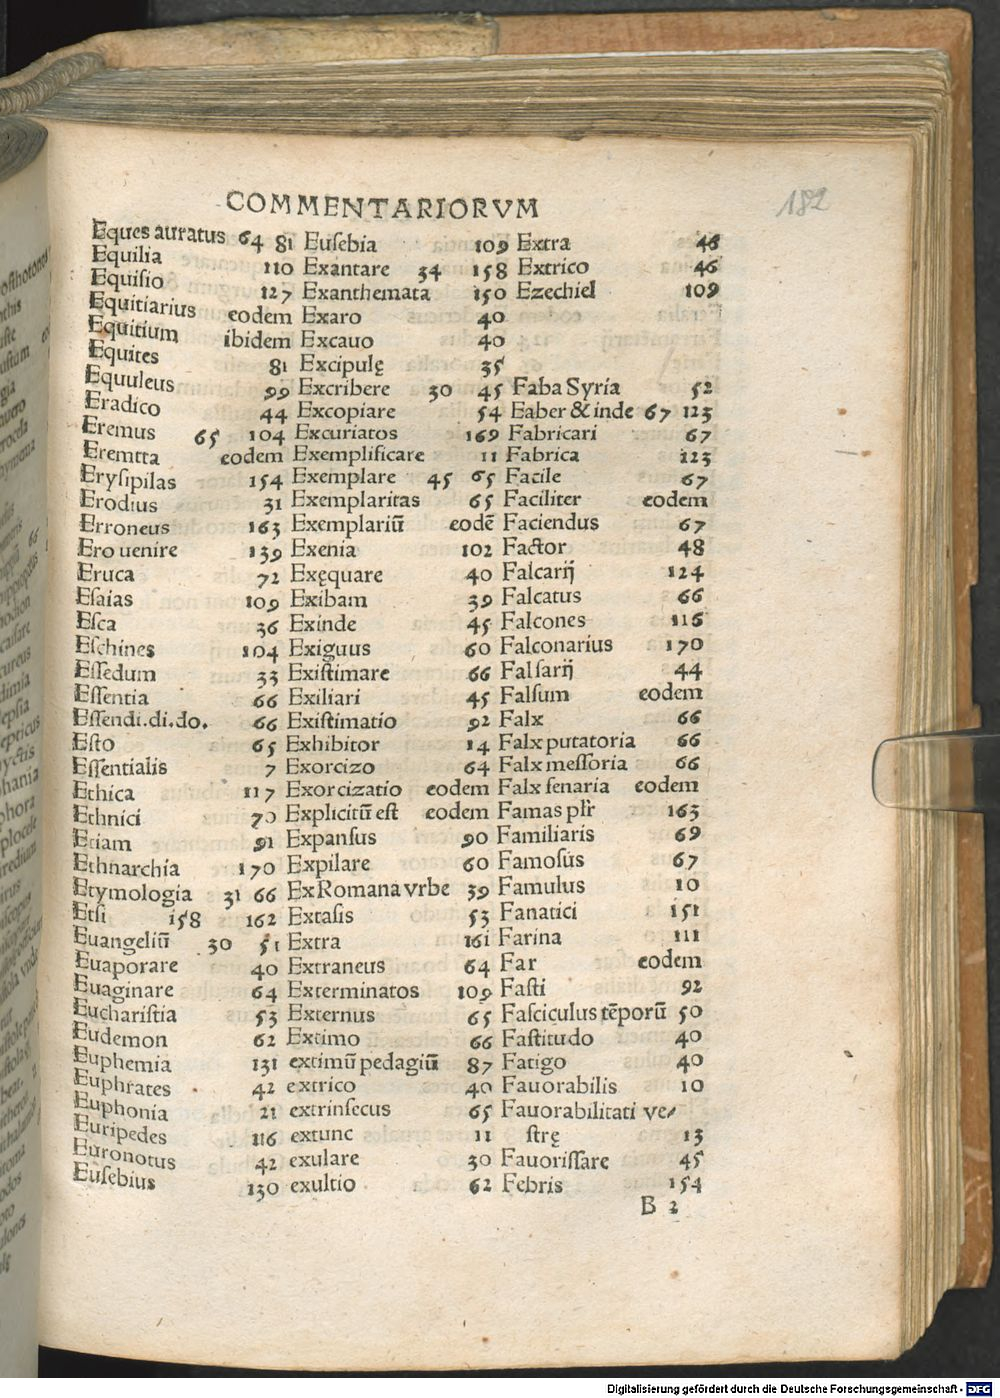 COMMENTARIORVM
182
Eques auratus 64 81
Equilia 110
Equisio 127
Equitiarius eodem
Equitium ibidem
Equites 81
Equuleus 99
Eradico 44
Eremus 65 104
Eremita eodem
Erysipilas 154
Erodius 31
Erroneus 163
Ero uenire 139
Eruca 72
Esaias 109
Esca 36
Eschines 104
Essedum 33
Essentia 66
Essendi.di.do. 66
Esto 65
Essentialis 7
Ethica 117
Ethnici 70
Etiam 91
Ethnarchia 170
Etymologia 31 66
Etsi 158 162
Euangeliũ 30 51
Euaporare 40
Euaginare 64
Eucharistia 53
Eudemon 62
Euphemia 131
Euphrates 42
Euphonia 21
Euripedes 116
Euronotus 42
Eusebius 130
Eusebia 109
Exantare 34 158
Exanthemata 150
Exaro 40
Excauo 40
Excipulę 35
Excribere 30 45
Excopiare 54
Excuriatos 169
Exemplificare 11
Exemplare 45 65
Exemplaritas 65
Exemplariũ eodẽ
Exenia 102
Exęquare 40
Exibam 39
Exinde 45
Exiguus 60
Existimare 66
Exiliari 45
Existimatio 92
Exhibitor 14
Exorcizo 64
Exorcizatio eodem
Explicitũ est eodem
Expansus 90
Expilare 60
Ex Romana vrbe 39
Extasis 53
Extra 161
Extraneus 64
Exterminatos 109
Externus 65
Extimo 66
extimũ pedagiũ 87
extrico 40
extrinsecus 65
extunc 11
exulare 30
exultio 62
Extra 46
Extrico 46
Ezechiel 109
Faba Syria 52
Eaber & inde 67 123
Fabricari 67
Fabrica 123
Facile 67
Faciliter eodem
Faciendus 67
Factor 48
Falcarij 124
Falcatus 66
Falcones 116
Falconarius 170
Falsarij 44
Falsum eodem
Falx 66
Falx putatoria 66
Falx messoria 66
Falx senaria eodem
Famas plr̃ 163
Familiaris 69
Famosus 67
Famulus 10
Fanatici 151
Farina 111
Far eodem
Fasti 92
Fasciculus tẽporũ 50
Fastitudo 40
Fatigo 40
Fauorabilis 10
Fauorabilitati ve/
strę 13
Fauorissare 45
Febris 154
B 2
Digitalisierung gefördert durch die Deutsche Forschungsgemeinschaft - DFG